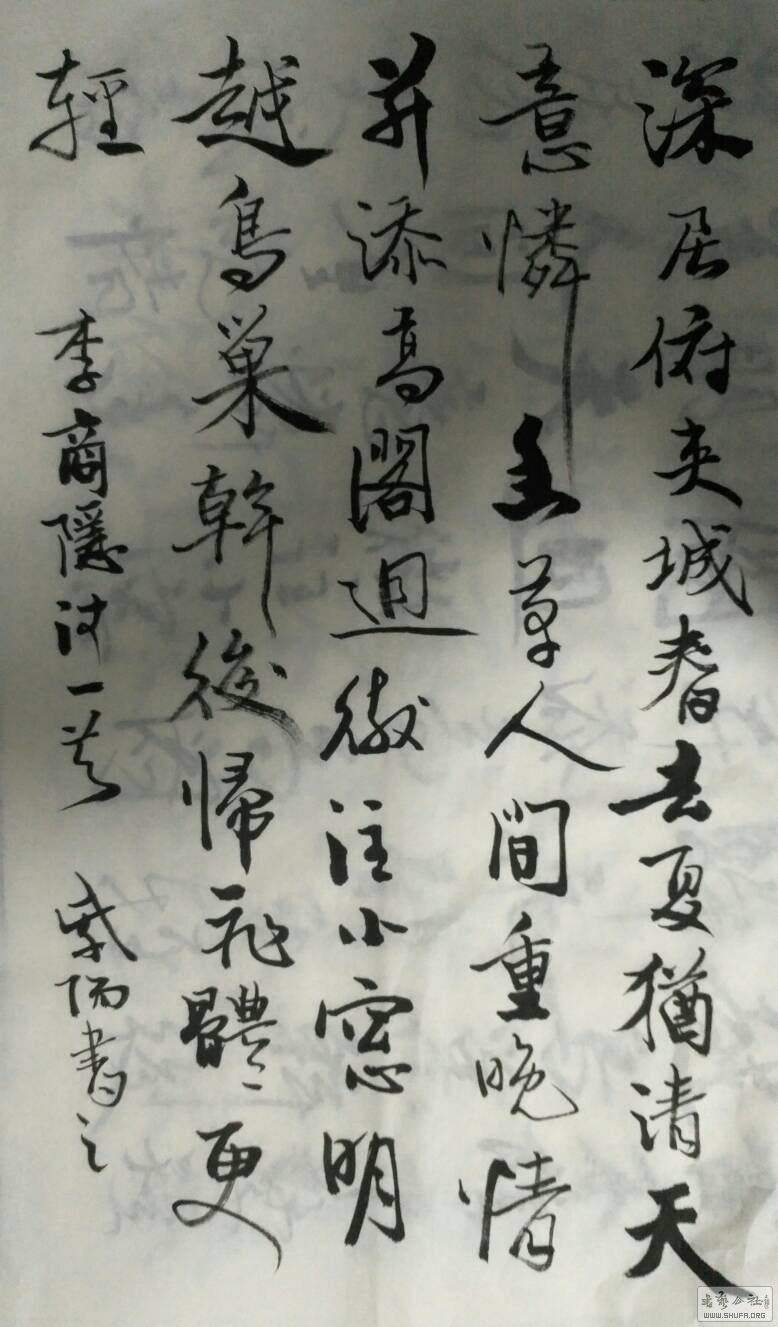 深居俯夹城春去夏猶清天
意憐幽草人間重晚情
并添高閣迥微注小窓明
越鳥巢幹後帰飛體更
輕 李商隱诗一首 書之
書藝公社
WWW.SHUFA.ORG